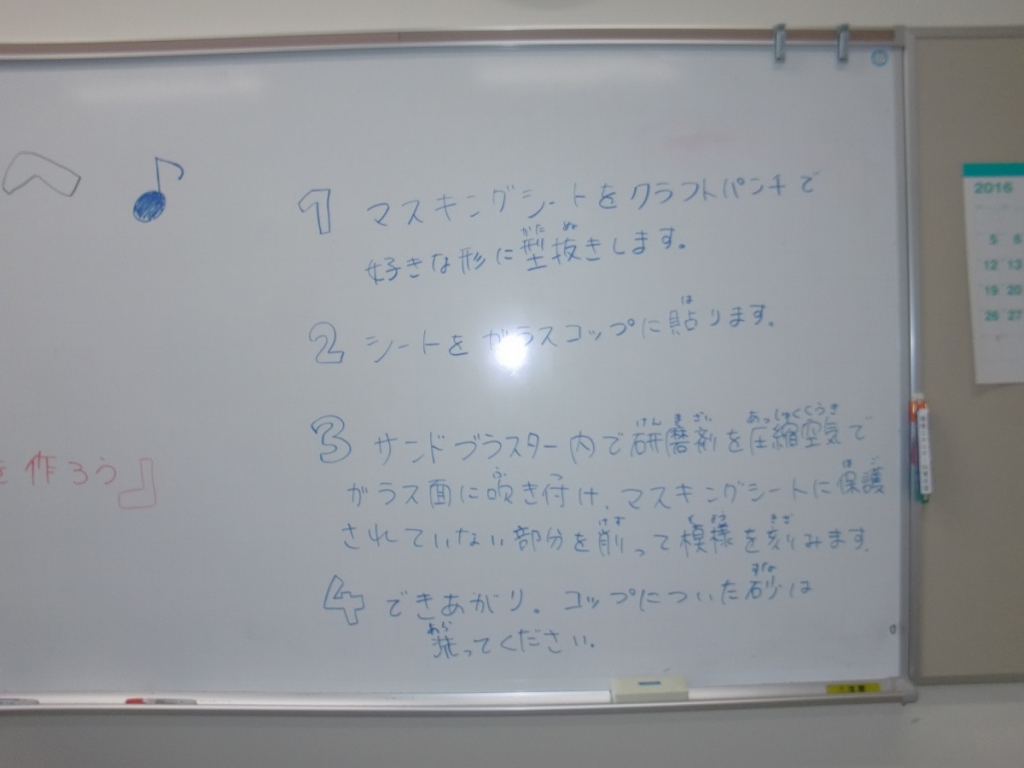 1 マスキングシートをクラフトパンチで
かた ぬ
好きな形に型抜きします。
は
2 シートをガラスコップに貼ります。
けん ま ざい あっしゅくくうき
3 サンドブラスター内で研磨剤を圧縮空気で
ふ つ ほ ご
ガラス面に吹き付け、マスキングシートに保護
けず も よう きざ
されていない部分を削って模様を刻みます。
すな
4 できあがり。コップについた砂は
あら
洗ってください。
を作ろう』
2016
5 6
12 13
19 20
26 27